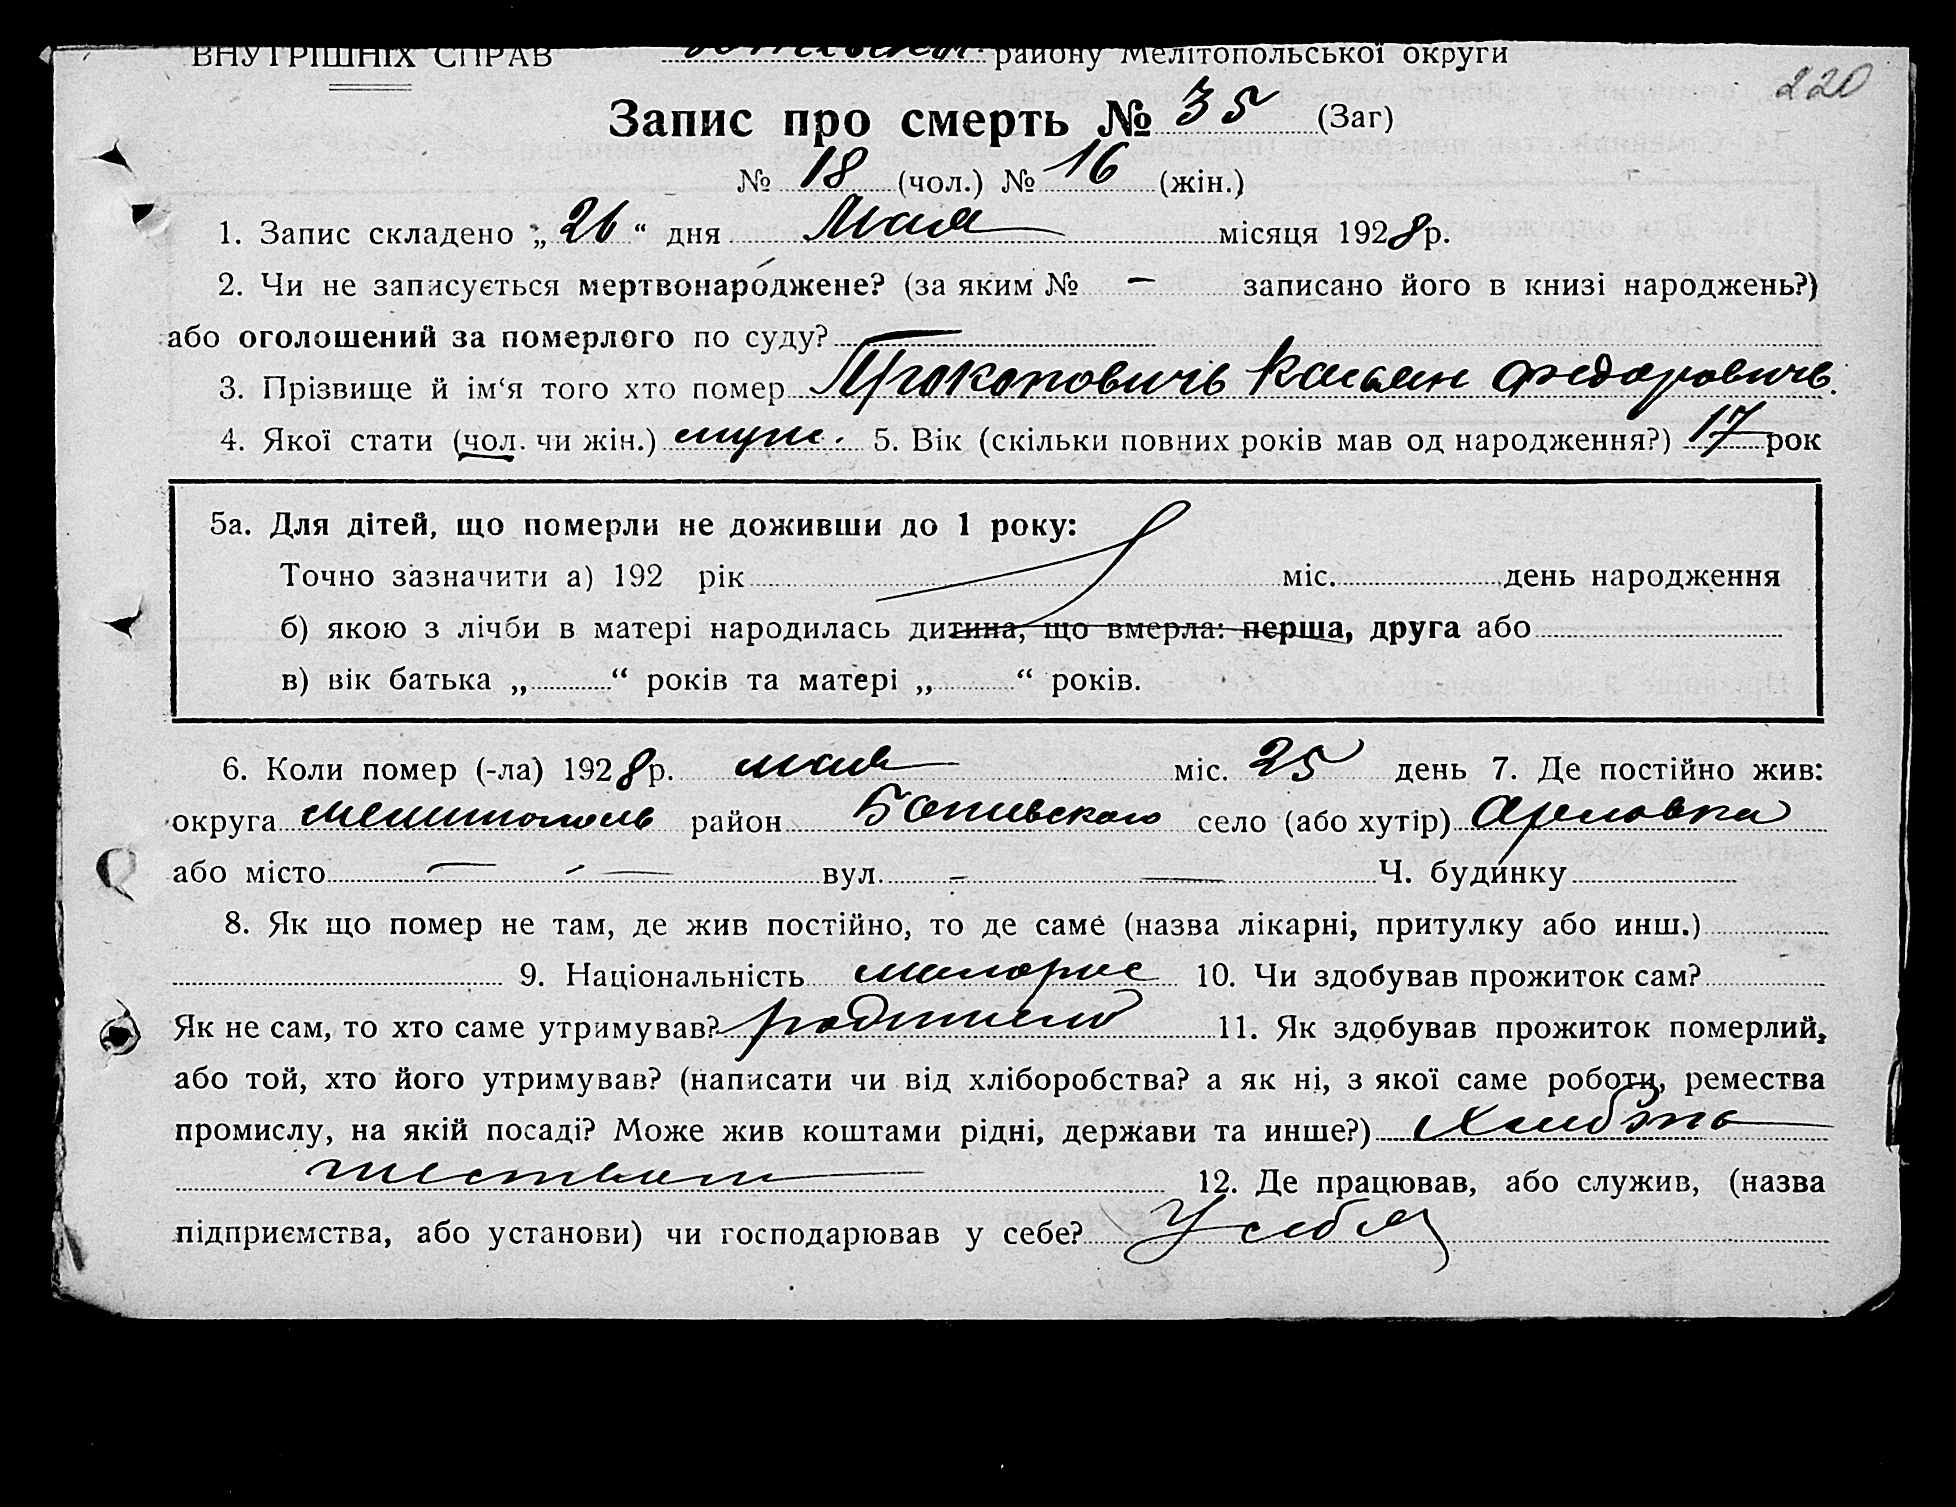 ВНУТРІШНІХ СПРАВ району Мелітопольської округи
220
Запис про смерть № 35 (Заг)
№ 18 (чол.) № 16 (жін.)
1. Запис складено „ 26 “ дня Мая місяця 1928 р.
2. Чи не записується мертвонароджене? (за яким № – записано його в книзі народжень?)
або оголошений за померлого по суду?
3. Прізвище й ім‘я того хто помер Прокоповичь Касьян Федоровичь.
4. Якої стати (чол. чи жін.) муж. 5. Вік (скільки повних років мав од народження?) 17 рок
5а. Для дітей, що померли не доживши до 1 року:
Точно зазначити а) 192 рік міс. день народження
б) якою з лічби в матері народилась дитина, що вмерла: перша, друга або
в) вік батька „ “ років та матері „ “ років.
6. Коли помер (-ла) 1928 р. мая міс. 25 день 7. Де постійно жив:
округа Мелитополь район Ботиевского село (або хутір)
або місто — - — вул. - — Ч. будинку
8. Як що помер не там, де жив постійно, то де саме (назва лікарні, притулку або инш.)
9. Національність малорос 10. Чи здобував прожиток сам?
Як не сам, то хто саме утримував? родители 11. Як здобував прожиток померлий,
або той, хто його утримував? (написати чи від хліборобства? а як ні, з якої саме роботи, ремества
промислу, на якій посаді? Може жив коштами рідні, держави та инше?) хлебопа
шеством 12. Де працював, або служив, (назва
підприємства, або установи) чи господарював у себе? У себя